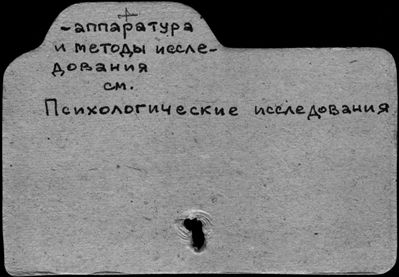 -аппаратура
и методы иссле-
дования
см.
Психологические исследования